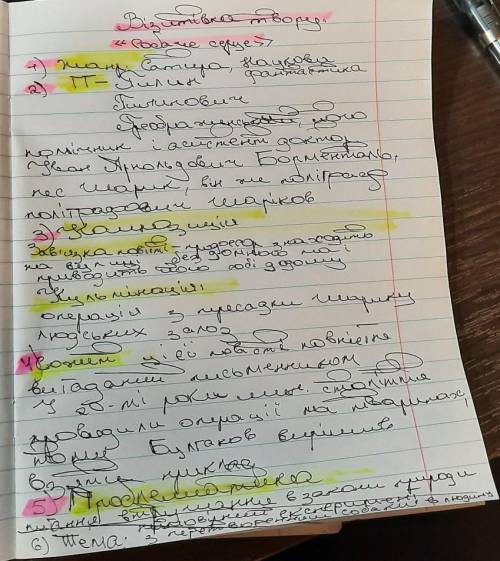 Візитівка твору:
«Собаче серце»
1) Жанр: Сатира, наукова
фантастика
2) ГГ – Пилип
Пилипович
Преображенський, його
помічник і асистент доктор
Іван Арнольдович Борменталь,
пес Шарик, він же поліграф
поліграфович Шаріков
3) Композиція
Зав'язка повісті – професор знаходить
на вулиці бездомного пса і
приводить його собі додому
Кульмінація:
операція з пересадки Шарику
людських залоз
4) Сюжет цієї повісті повністю
вигаданий письменником
У 20-ті роки мин. століття
проводили операції на тваринах,
тому Булгаков вирішив
взяти приклад
5) Проблематика
питання втручання в закони природи
6) Тема: з перетворення собаки в людину